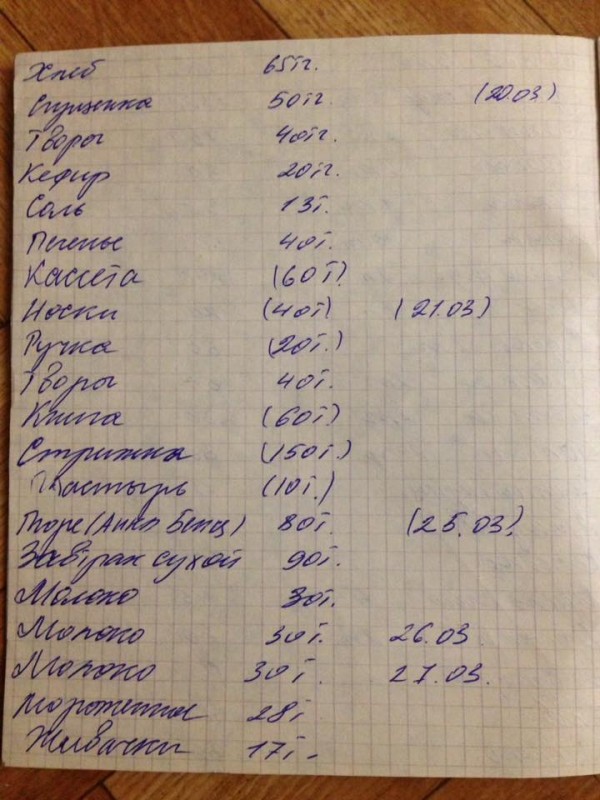 Хлеб 65тг.
Сгущенка 50тг (20.03)
Творог 40тг.
Кефир 20тг.
Соль 13т.
Печенье 40т.
Кассета (60т)
Носки (40т) (21.03)
Ручка (20т.)
Творог 40т.
Книга (60т)
Стрижка (150т.)
Пластырь (10т.)
Пюре (Анкл Бенц) 80т. (25.03).
Завтрак сухой 90т.
Молоко 30т.
Молоко 30т. 26.03
Молоко 30т. 27.03.
Мороженное 28т
Жывачки 17т.